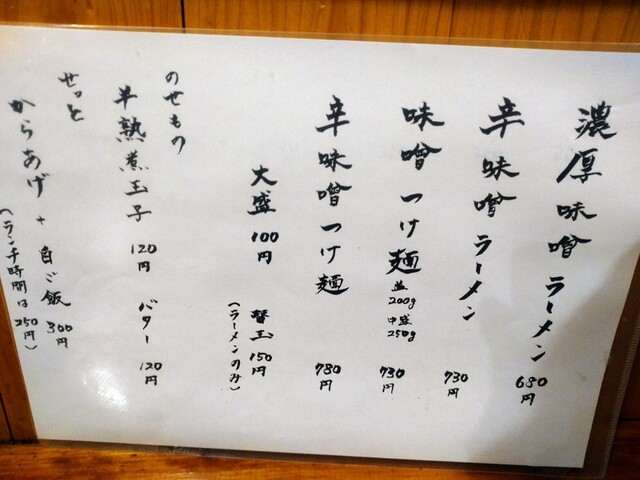 濃厚味噌ラーメン 680円
辛味噌ラーメン 730円
味噌つけ麺 並200g 中盛250g 730円
辛味噌つけ麺 780円
大盛 100円 替玉 150円
(ラーメンのみ)
のせもの
半熟煮玉子 120円 バター 120円
せっと
からあげ + 白ご飯 300円
(ランチ時間は250円)